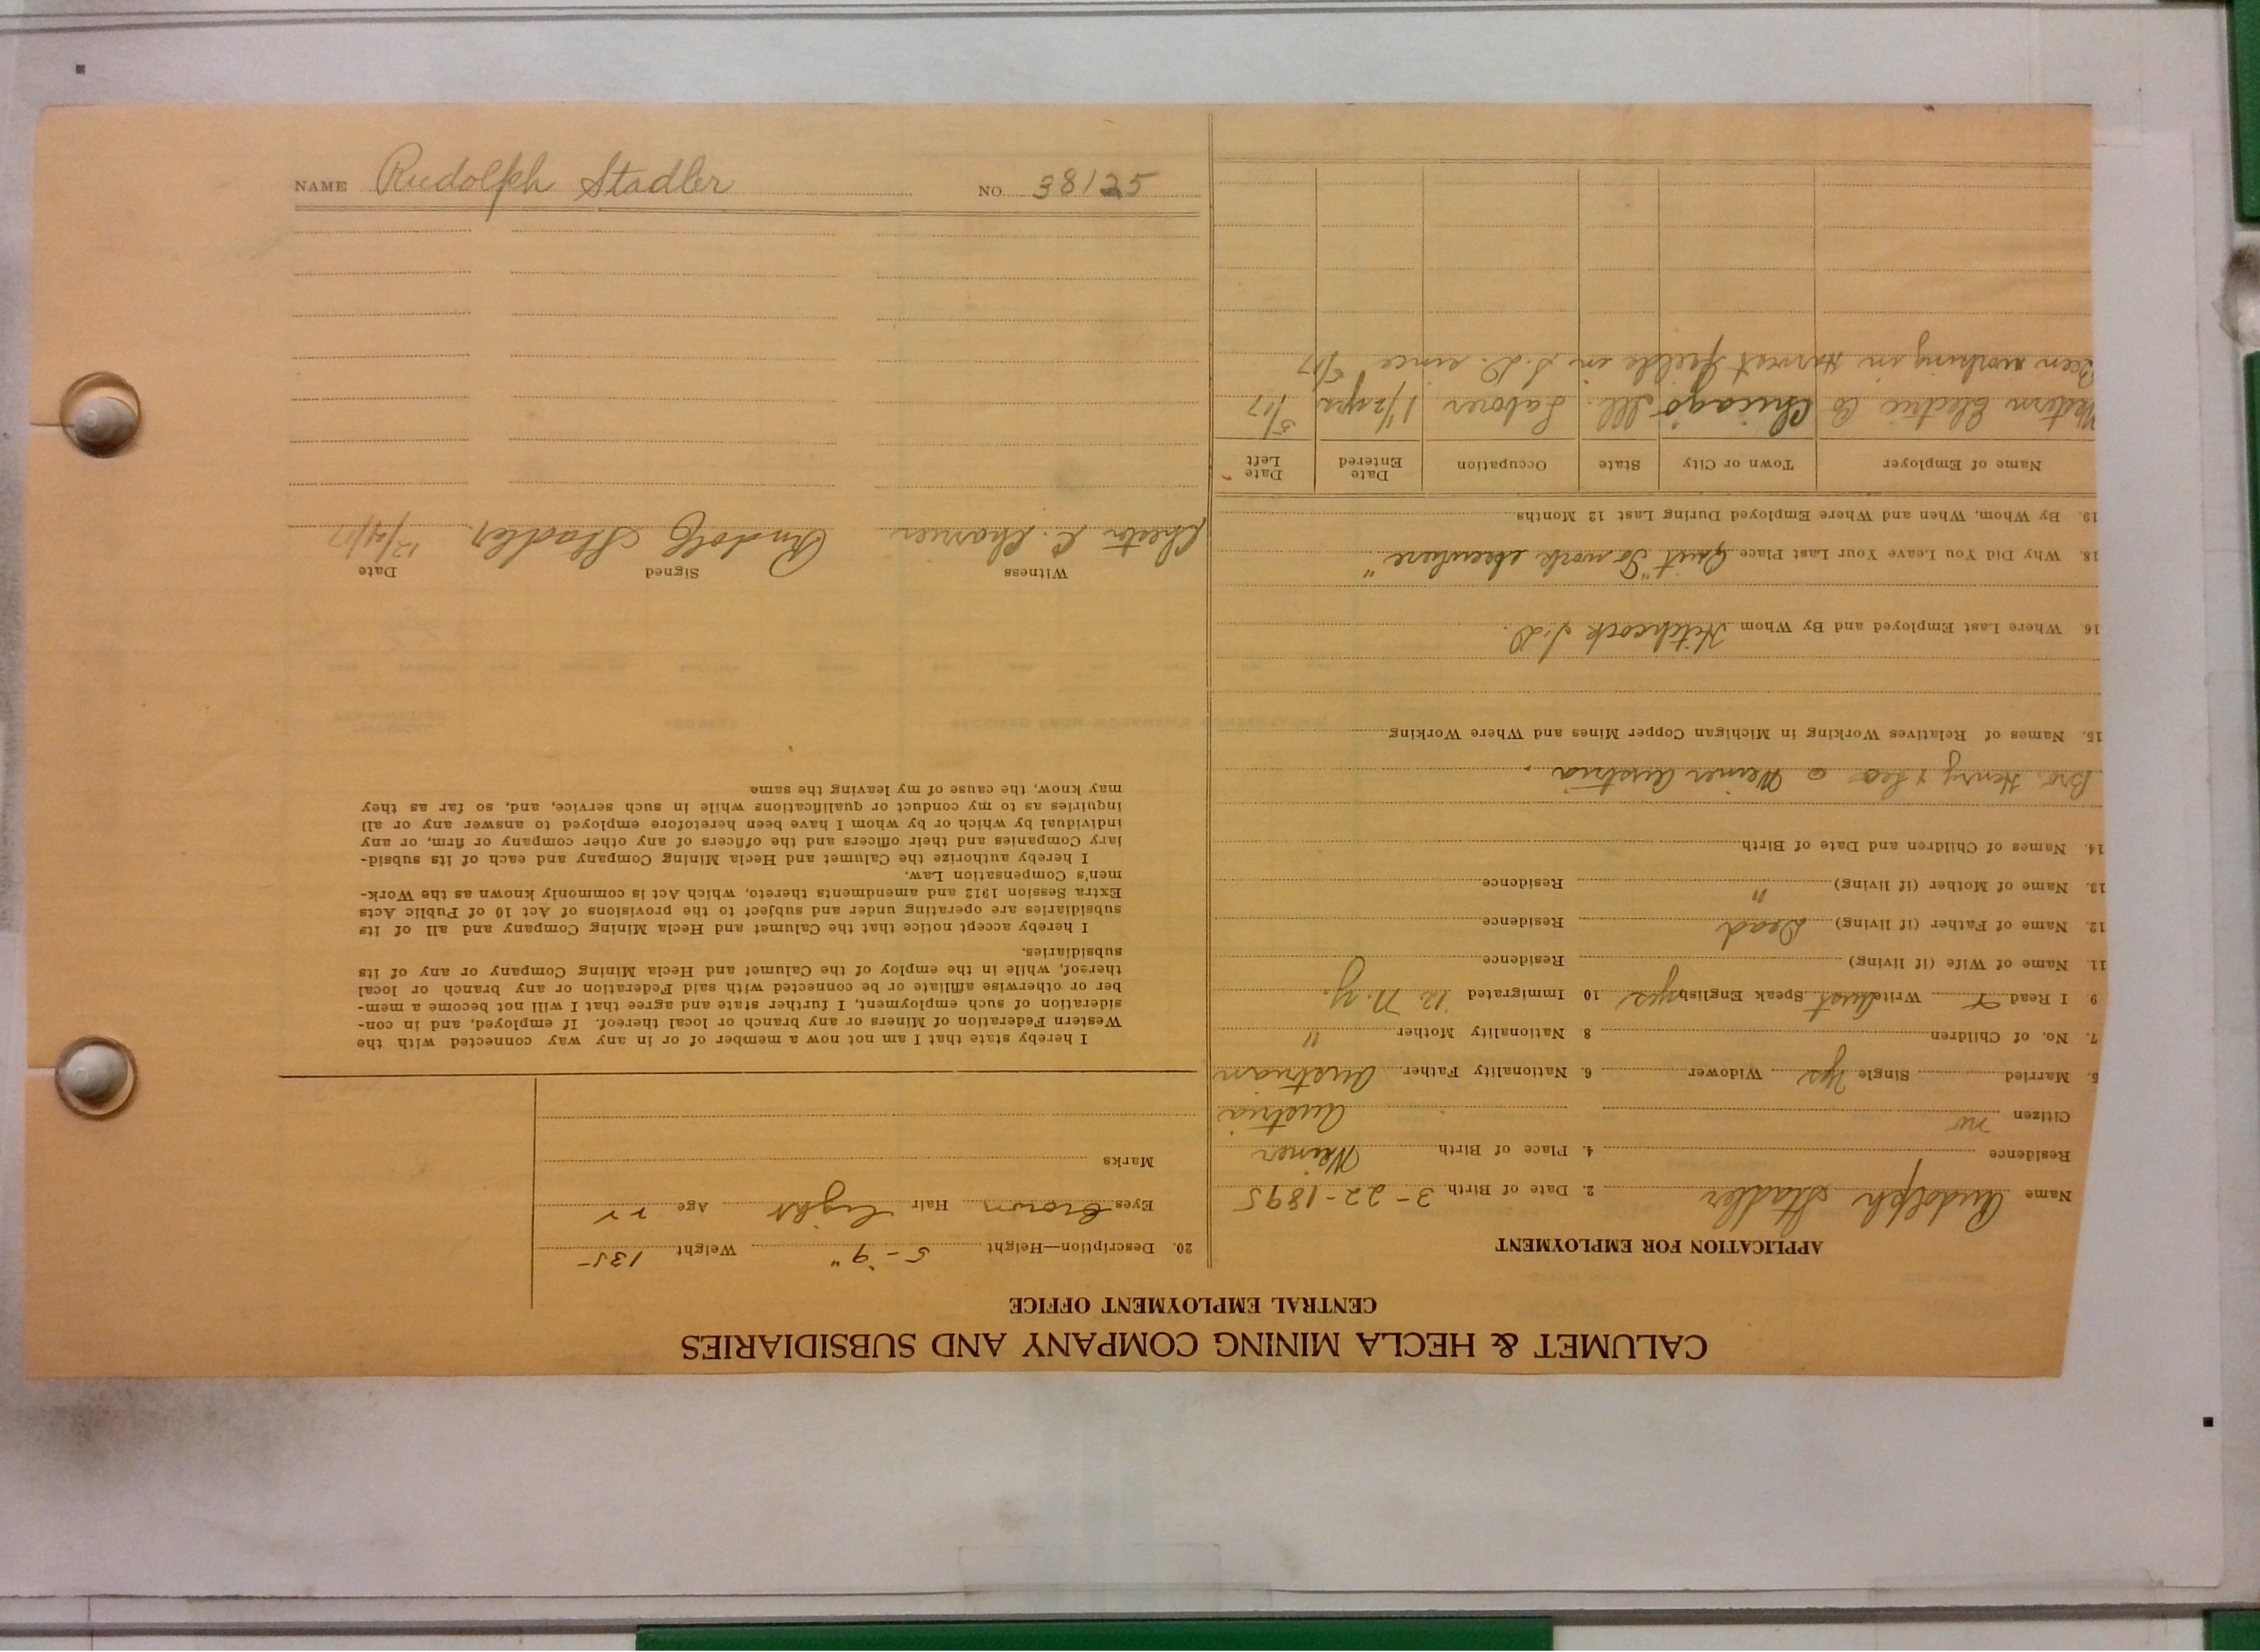 CALUMET & HECLA MINING COMPANY AND SUBSIDIARIES
CENTRAL EMPLOYMENT OFFICE
APPLICATION FOR EMPLOYMENT
Name Rudolph Stadler 2. Date of Birth 3-22-1895
Residence 4. Place of Birth Weiner
Citizen no Austria
5. Married Single Yes Widower 6. Nationality Father Austrian
7. No. of Children 8 Nationality Mother "
9 I Read & Write Aust Speak English yes 10 Immigrated '12 N.Y.
11. Name of Wife (if living) Residence
12. Name of Father (if living) Dead Residence
13. Name of Mother (if living) " Residence
14. Names of Children and Date of Birth
Bro. Henry & Leo @ Weiner Austria.
15. Names of Relatives Working in Michigan Copper Mines and Where Working
16. Where Last Employed and By Whom Hitchcock S.D.
18. Why Did You Leave Your Last Place Quit "To work elsewhere"
19. By Whom, When and Where Employed During Last 12 Months
Name of Employer Town or City State Occupation Date Entered Date Left
Western Electric Co Chicago Ill. Laborer 1 1/2 yrs 5/17
Been working in Harvest fields in S.D. since 5/17
20. Description—Height 5-9" Weight 135
Eyes brown Hair light Age 22
Marks
I hereby state that I am not now a member of or in any way connected with the
Western Federation of Miners or any branch or local thereof. If employed, and in con-
sideration of such employment, I further state and agree that I will not become a mem-
ber or otherwise affiliate or be connected with said Federation or any branch or local
thereof, while in the employ of the Calumet and Hecla Mining Company or any of its
subsidiaries.
I hereby accept notice that the Calumet and Hecla Mining Company and all of its
subsidiaries are operating under and subject to the provisions of Act 10 of Public Acts
Extra Session 1912 and amendments thereto, which Act is commonly known as the Work-
men's Compensation Law.
I hereby authorize the Calumet and Hecla Mining Company and each of its subsid-
iary Companies and their officers and the officers of any other company or firm, or any
individual by which or by whom I have been heretofore employed to answer any or all
inquiries as to my conduct or qualifications while in such service, and, so far as they
may know, the cause of my leaving the same
Witness Signed Date
Chester C. Rudolf Stadler 12/4/17
NAME Rudolph Stadler NO. 38125